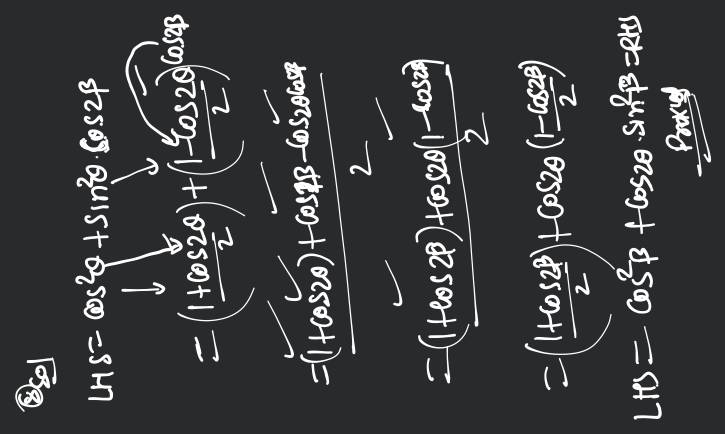 Sol
LHS = cos²θ + sin²θ·cos2β
= (1+cos2θ/2) + (1-cos2θ/2) cos2β
= (1+cos2θ) + cos2β - cos2θcos2β / 2
= (1+cos2β) + cos2θ(1-cos2β) / 2
= (1+cos2β/2) + cos2θ (1-cos2β/2)
LHS = cos²β + cos2θ·sin²β = RHS
Proved